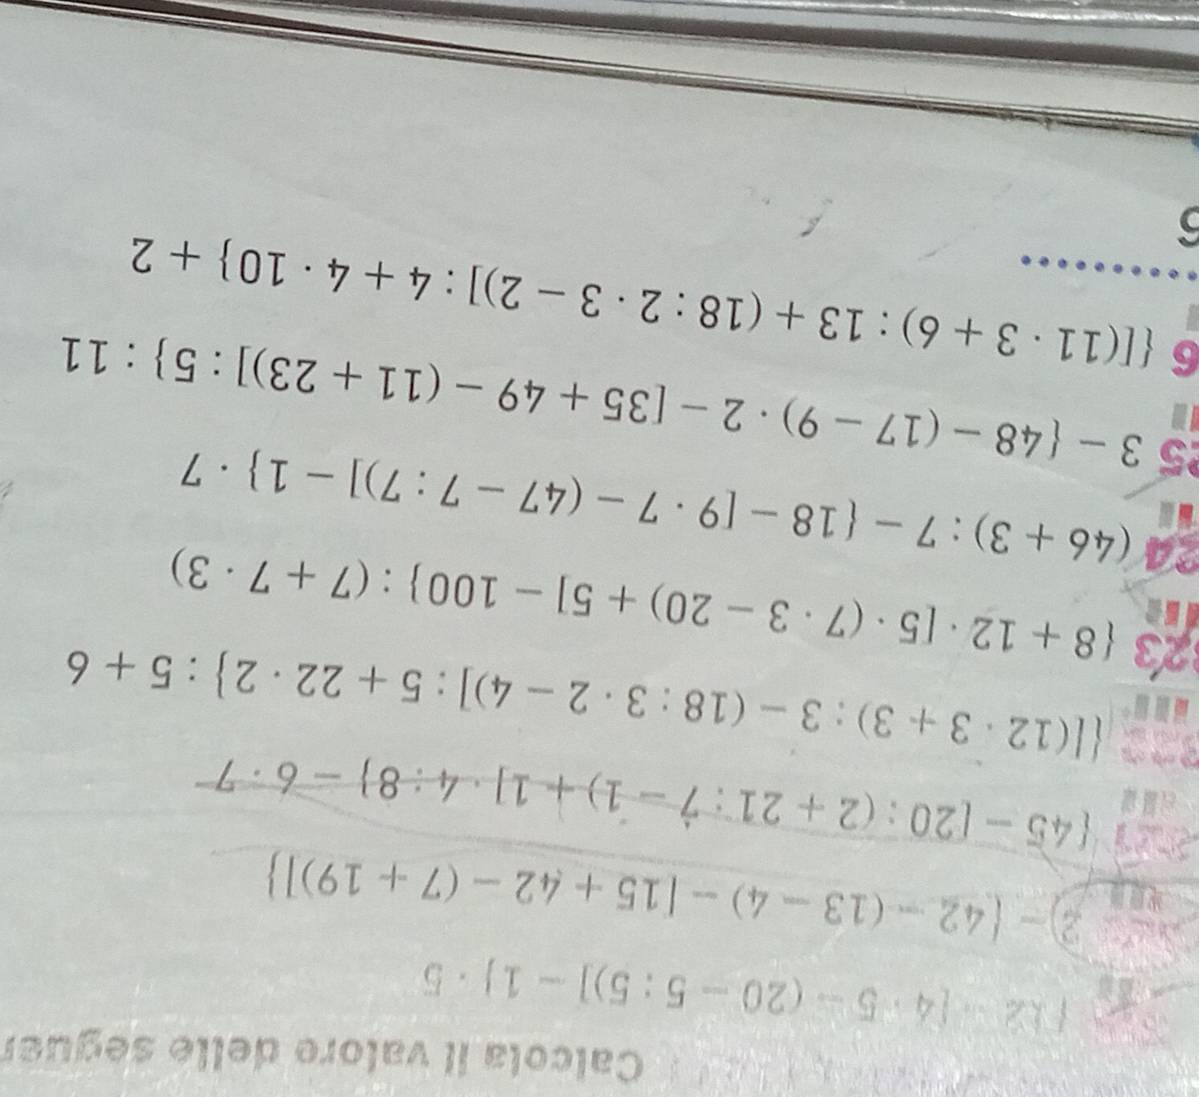 Calcola il valore delle seguen
{12 - [4 · 5 - (20 - 5 : 5)] - 1} · 5
2 - {42 - (13 - 4) - [15 + 42 - (7 + 19)]}
{45 - [20 : (2 + 21 : 7 - 1) + 1] · 4 : 8} - 6 · 7
{[(12 · 3 + 3) : 3 - (18 : 3 · 2 - 4)] : 5 + 22 · 2} : 5 + 6
23 {8 + 12 · [5 · (7 · 3 - 20) + 5] - 100} : (7 + 7 · 3)
24 (46 + 3) : 7 - {18 - [9 · 7 - (47 - 7 : 7)] - 1} · 7
25 3 - {48 - (17 - 9) · 2 - [35 + 49 - (11 + 23)] : 5} : 11
6 {[(11 · 3 + 6) : 13 + (18 : 2 · 3 - 2)] : 4 + 4 · 10} + 2